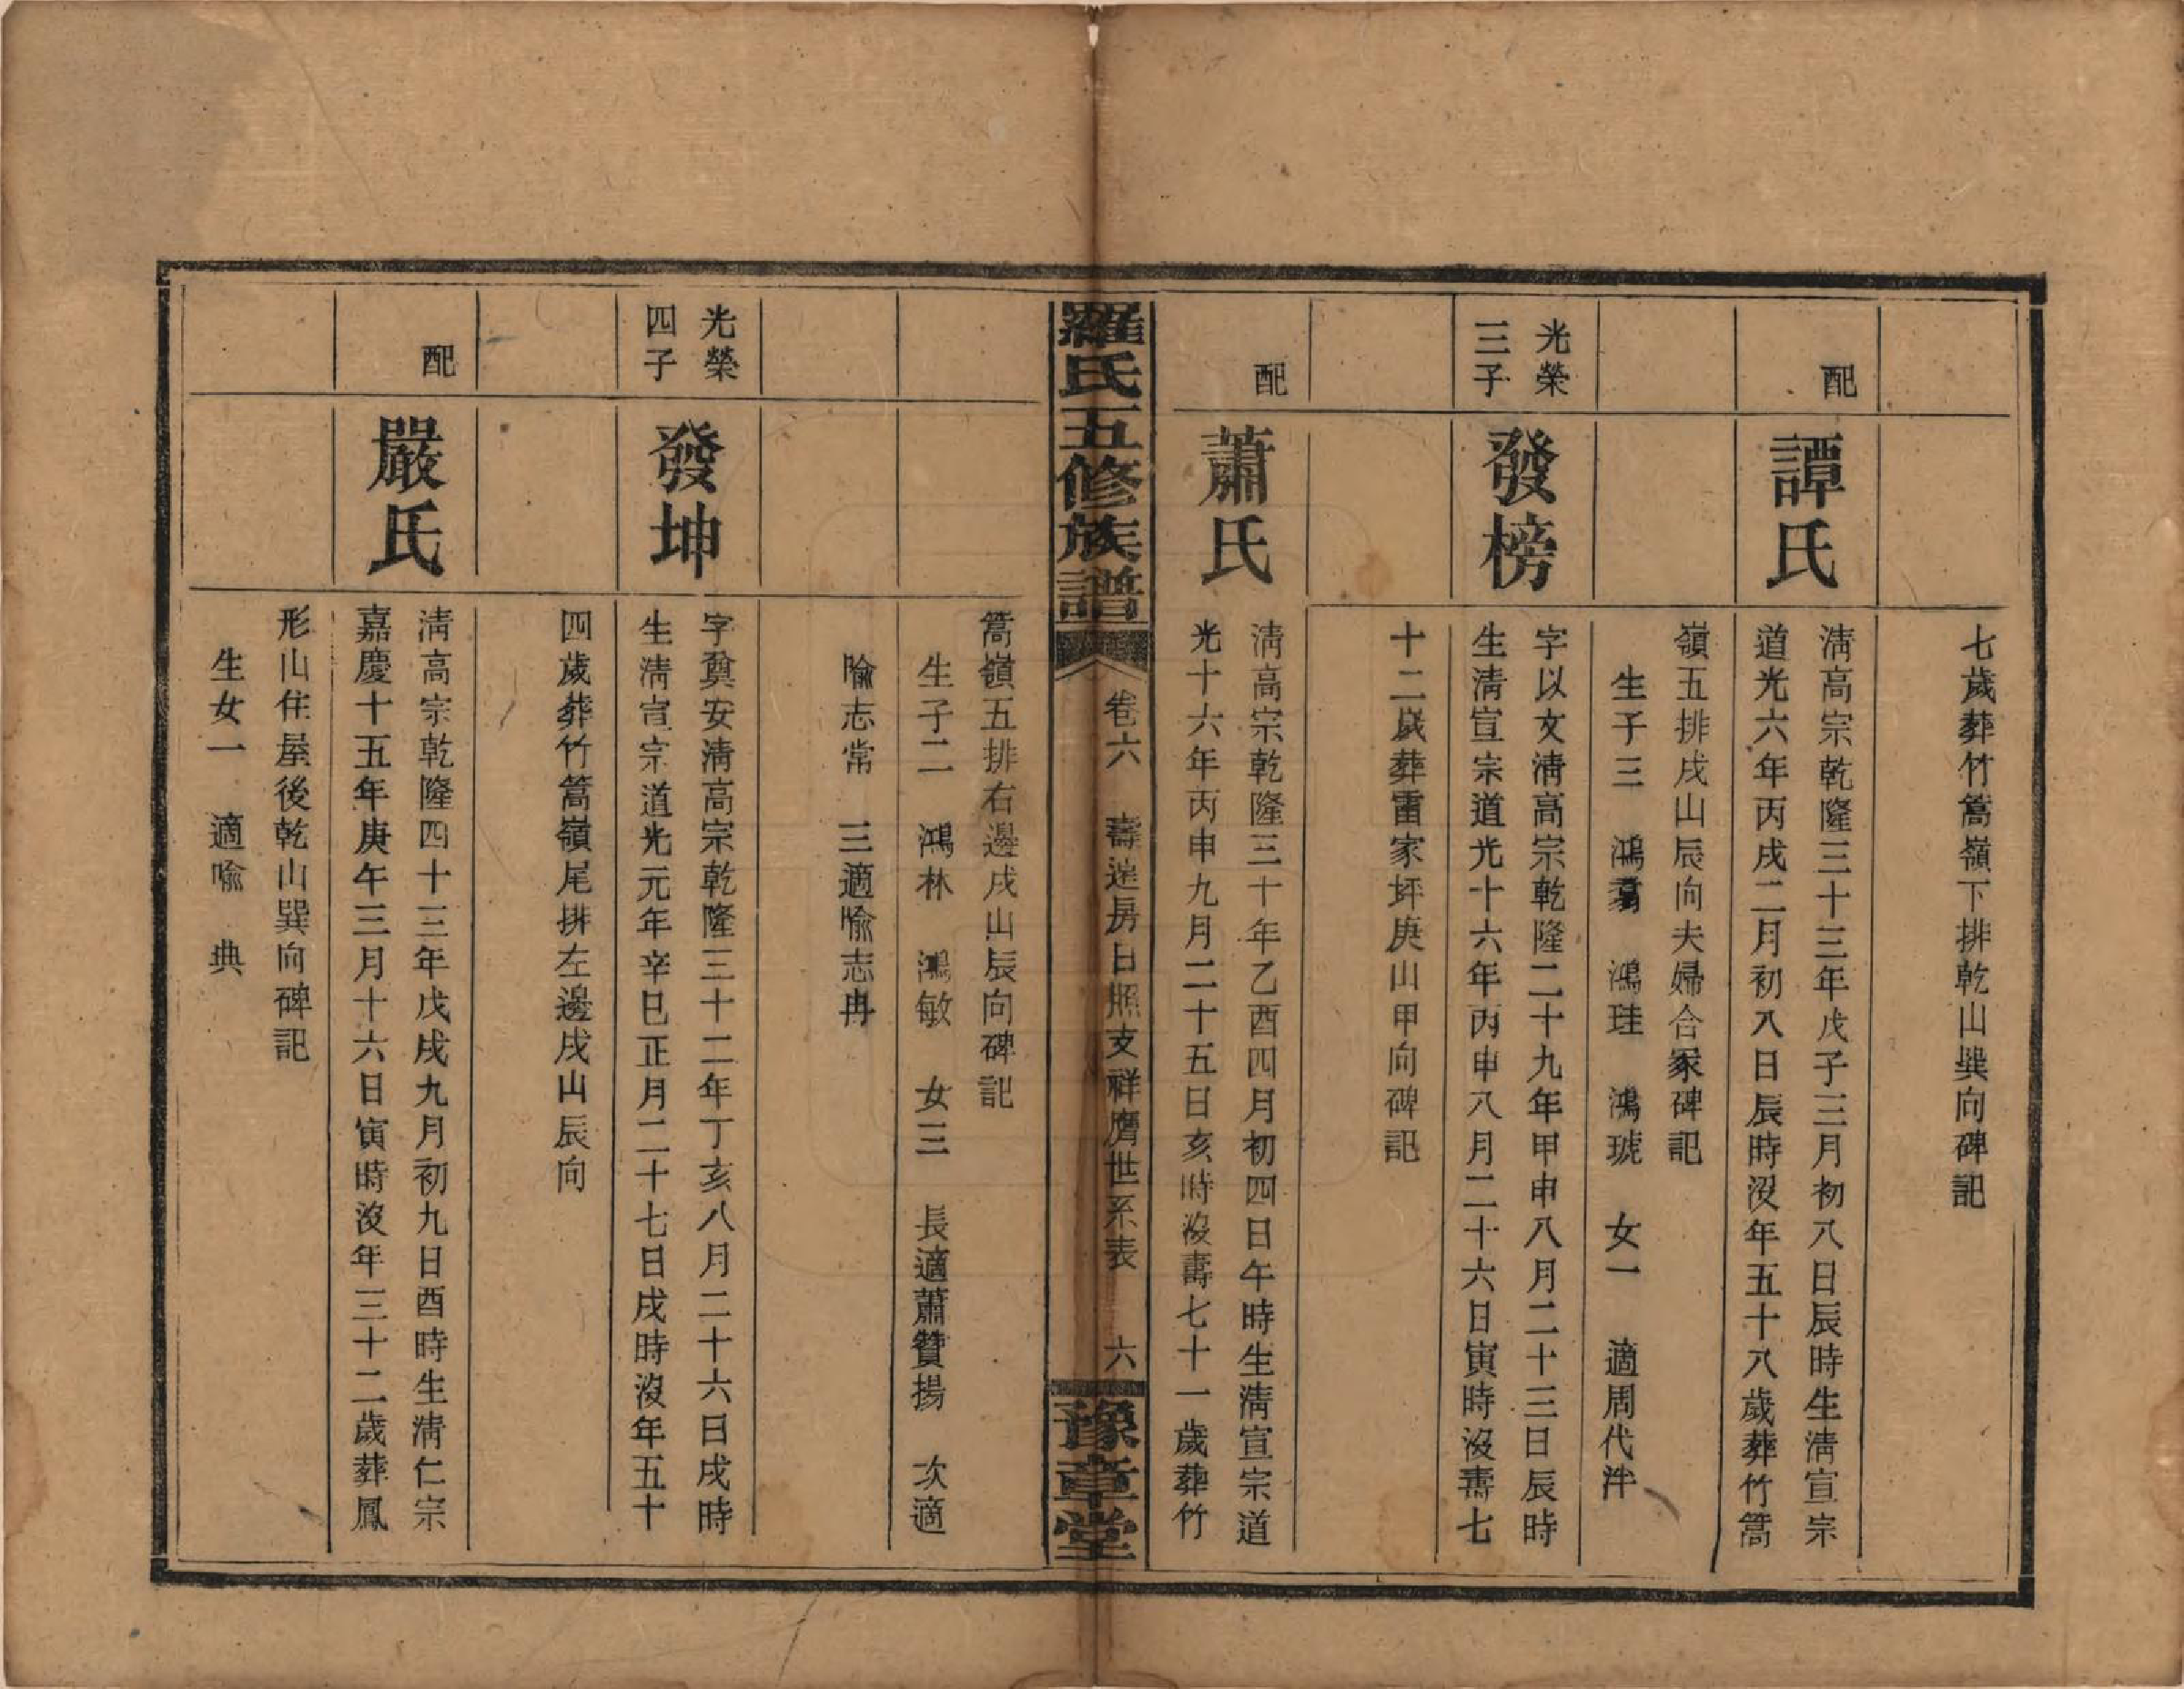 七歲葬竹篙嶺下排乾山巽向碑記
配
譚氏
淸高宗乾隆三十三年戊子三月初八日辰時生淸宣宗
道光六年丙戌二月初八日辰時沒年五十八歲葬竹篙
嶺五排戌山辰向夫婦合冢碑記
生子三 鴻翥 鴻珪 鴻琥 女一 適周代泮
光榮
三子
發榜
字以文淸高宗乾隆二十九年甲申八月二十三日辰時
生淸宣宗道光十六年丙申八月二十六日寅時沒壽七
十二歲葬雷家坪庚山甲向碑記
配
蕭氏
淸高宗乾隆三十年乙酉四月初四日午時生淸宣宗道
光十六年丙申九月二十五日亥時沒壽七十一歲葬竹
羅氏五修族譜
卷六 壽遠房日照支祥膺世系表 六
豫章堂
篙嶺五排右邊戌山辰向碑記
生子二 鴻林 鴻敏 女三 長適蕭贊揚 次適
喻志常 三適喻志冉
光榮
四子
發坤
字奠安淸高宗乾隆三十二年丁亥八月二十六日戌時
生淸宣宗道光元年辛巳正月二十七日戌時沒年五十
四歲葬竹篙嶺尾排左邊戌山辰向
配
嚴氏
淸高宗乾隆四十三年戊戌九月初九日酉時生淸仁宗
嘉慶十五年庚午三月十六日寅時沒年三十二歲葬鳳
形山住屋後乾山巽向碑記
生女一 適喻 典